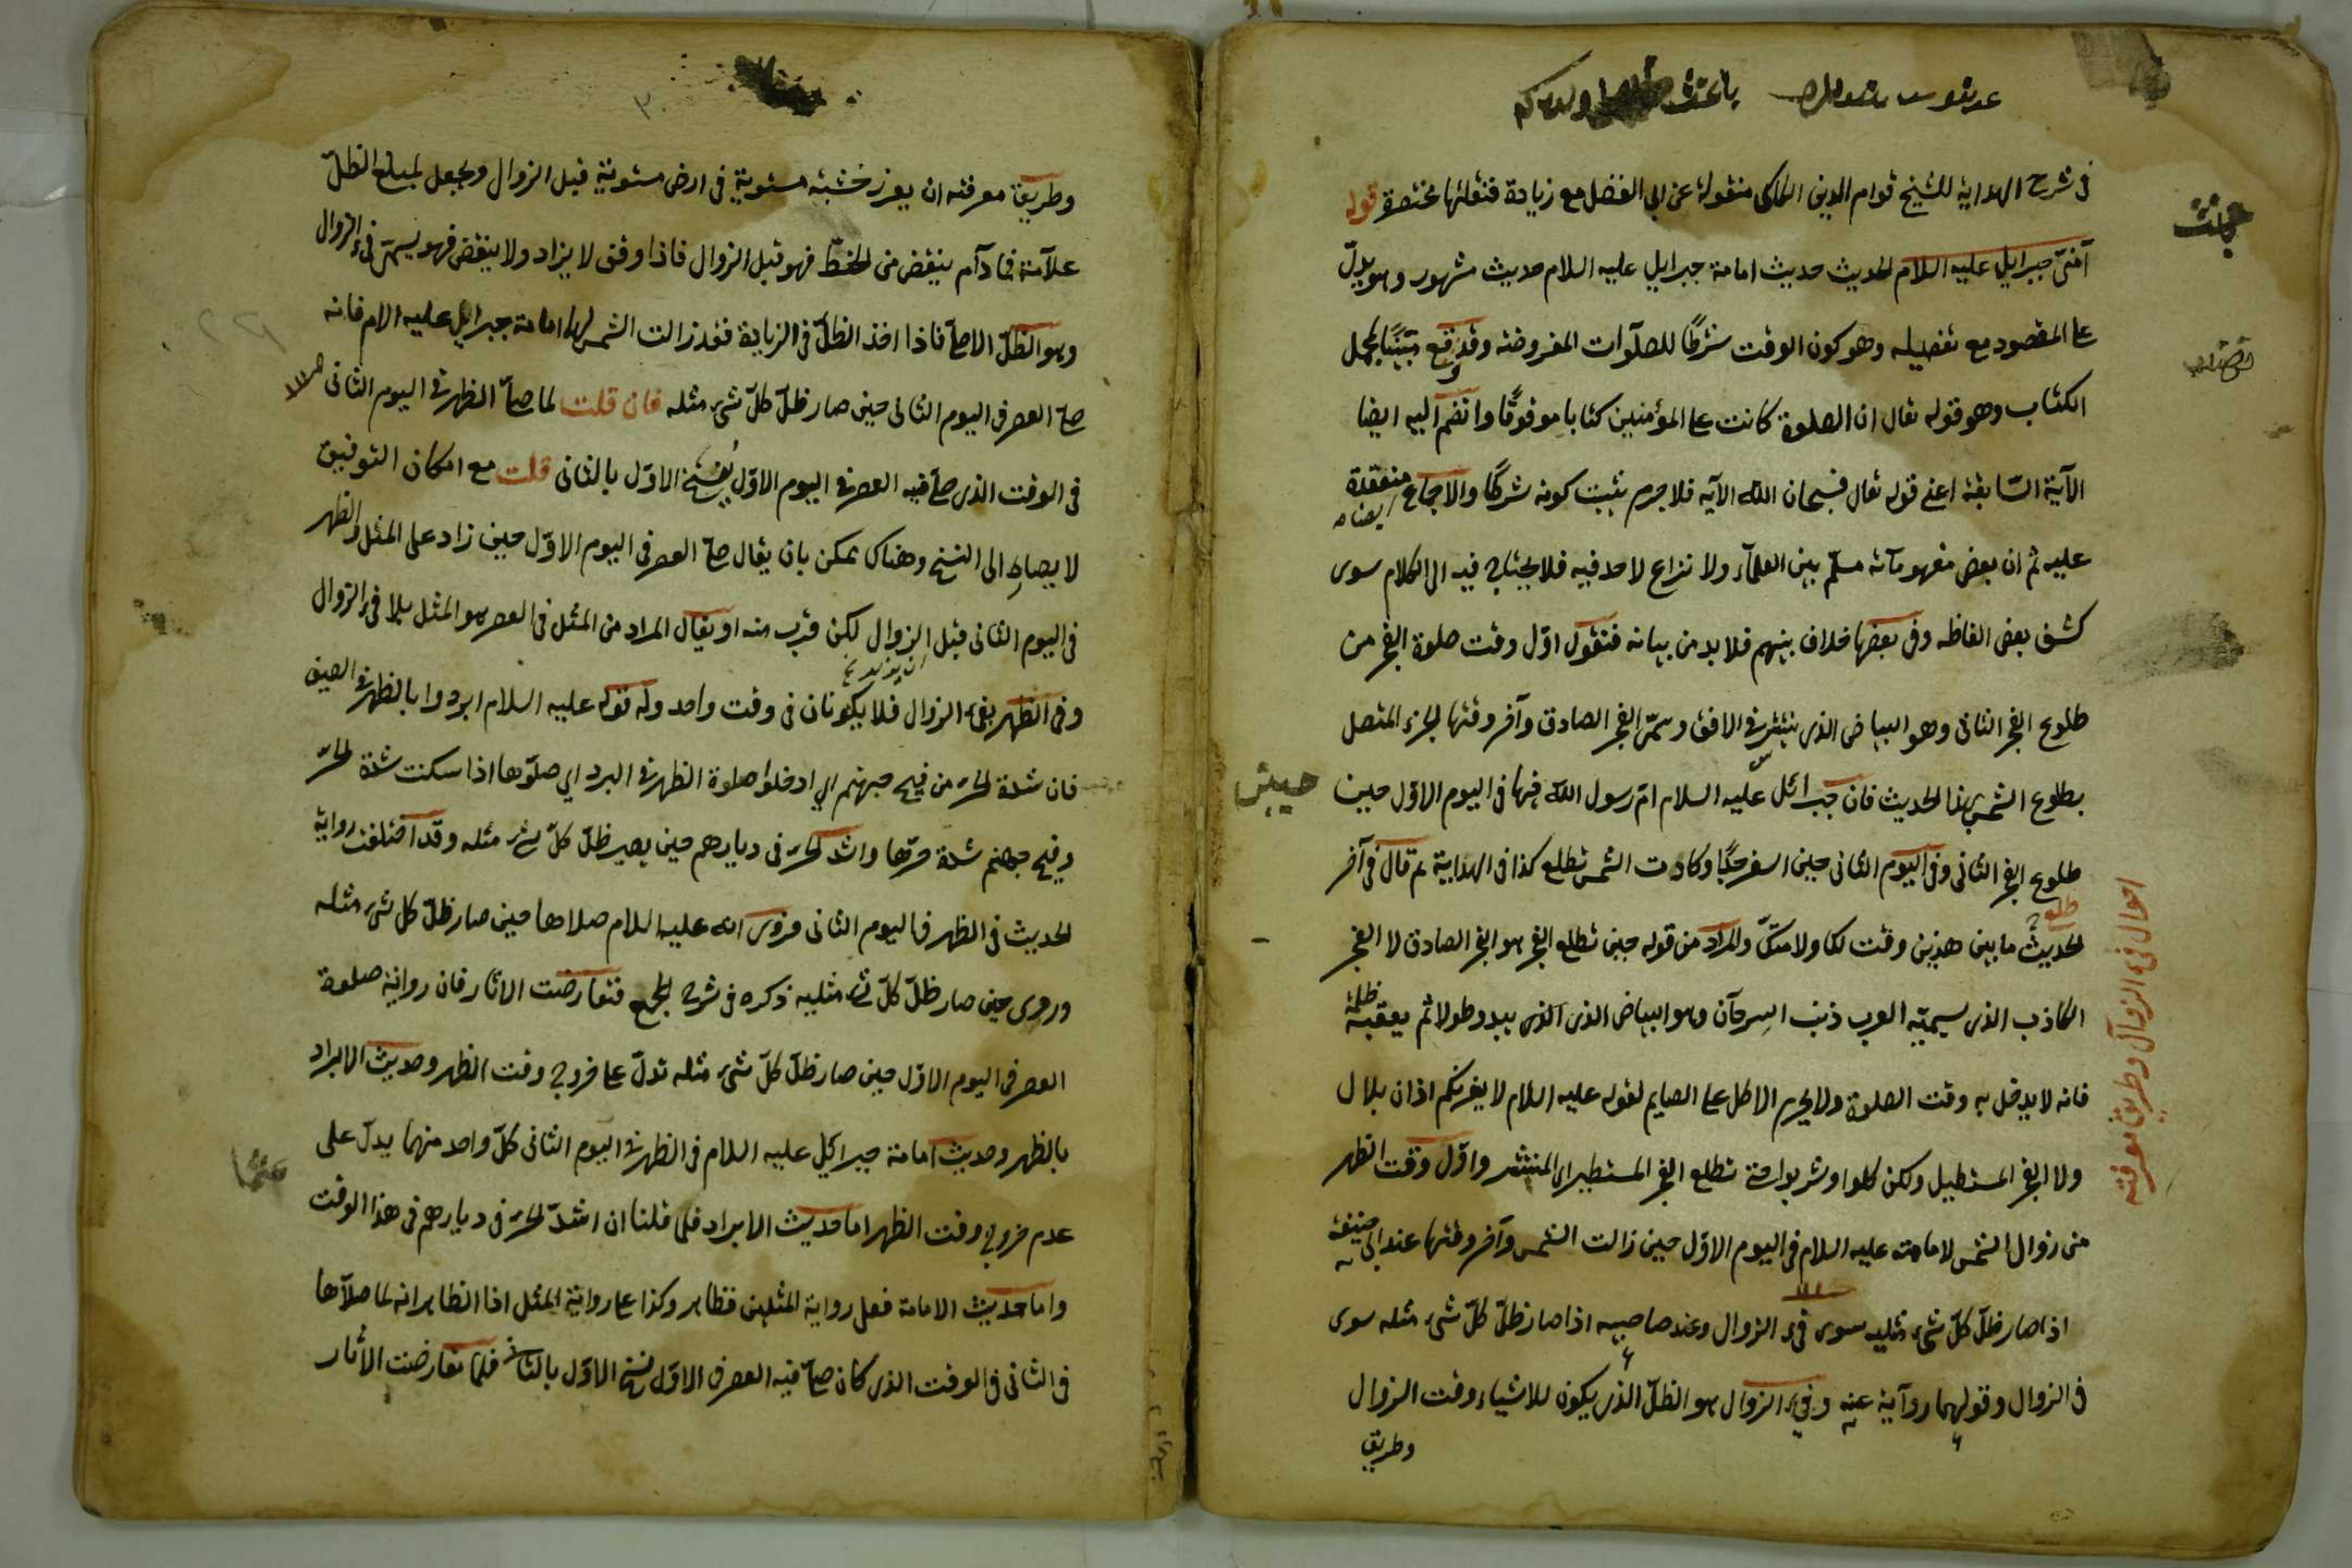 في شرح الهداية للشيخ قوام الدين الكاكى منقولة عن ابى الفضل مع زيادة فنقلتها مختصرة قوله
آمنى جبرايل عليه السلام الحديث حديث امامة جبرايل عليه السلام حديث مشهور وهو يدل
على المقصود مع تفصيله وهو كون الوقت شرطا للصلوات المفروضة وقد وقع مبينا لمجمل
الكتاب وهو قوله تعالى ان الصلوة كانت على المؤمنين كتابا موقوتا وانضم اليه ايضا
الآية السابقة اعنى قوله تعالى فسبحان الله الآية فلا جرم يثبت كونه شرطا والاجماع منعقدة ايضا
عليه ثم ان بعض مفهوماته مسلم بين العلماء ولا نزاع لاحد فيه فلا يحتاج فيه الى الكلام سوى
كشف بعض الفاظه وفى بعضها خلاف بينهم فلا بد من بيانه فنقول اول وقت صلوة الفجر من
طلوع الفجر الثانى وهو البياض الذى ينتشر فى الافق وسمى الفجر الصادق وآخر وقتها الجزء المتصل
بطلوع الشمس لهذا الحديث فان جبرائل عليه السلام ام رسول الله فيها فى اليوم الاول حين
طلوع الفجر الثانى وفى اليوم الثانى حين اسفر جدا وكادت الشمس تطلع كذا فى الهداية ثم قال فى آخر
الحديث ما بين هذين وقت لك ولامتك والمراد من قوله حين تطلع الفجر هو الفجر الصادق لا الفجر
الكاذب الذى يسميه العرب ذنب السرحان وهو البياض الذى الذى يبدو طولا ثم يعقبه ظلمة
فانه لا يدخل به وقت الصلوة ولا يحرم الاكل على الصايم لقوله عليه السلام لا يغرنكم اذان بلال
ولا الفجر المستطيل ولكن كلوا وشربوا حتى تطلع الفجر المستطير اى المنتشر واول وقت الظهر
من زوال الشمس لامامته عليه السلام فى اليوم الاول حين زالت الشمس وآخر وقتها عند ابى حنيفة
اذا صار ظل كل شىء مثليه سوى فىء الزوال وعند صاحبيه اذا صار ظل كل شىء مثله سوى
فى الزوال وقولهما رواية عنه وفىء الزوال هو الظل الذى يكون للاشياء وقت الزوال
وطريق
احوال فىء الزوال وطريق معرفته
وطريق معرفته ان يغرز خشبة مستوية فى ارض مستوية قبل الزوال ويجعل لمبلغ الظل
علامة فما دام ينقص من الخط فهو قبل الزوال فاذا وقف لا يزاد ولا ينقص فهو يسمى فىء الزوال
وهو الظل الاصلى فاذا اخذ الظل فى الزيادة فقد زالت الشمس لهما امامة جبرايل عليه السلام فانه
صلى العصر فى اليوم الثانى حين صار ظل كل شىء مثله فان قلت لما صلى الظهر فى اليوم الثانى
فى الوقت الذى صلى فيه العصر فى اليوم الاول يفسخ الاول بالثانى قلت مع امكان التوفيق
لا يصار الى النسخ وهناك يمكن بان يقال صلى العصر فى اليوم الاول حين زاد على المثل والظهر
فى اليوم الثانى قبل الزوال لكن قرب منه او يقال المراد من المثل فى العصر هو المثل بلا فىء الزوال
وفى الظهر بفىء الزوال فلا يكونان فى وقت واحد وله قوله عليه السلام ابردوا بالظهر فى الصيف
فان شدة الحر من فيح جهنم اى ادخلوا صلوة الظهر فى البرد اى صلوها اذا سكنت شدة الحر
وفيح جهنم شدة حرها واشد الحر فى ديارهم حين يصير ظل كل شىء مثله وقد اختلفت رواية
الحديث فى الظهر فى اليوم الثانى فروى انه عليه السلام صلاها حين صار ظل كل شىء مثله
وروى حين صار ظل كل شىء مثليه ذكره فى شرح المجمع فتعارضت الاثار فان رواية صلوة
العصر فى اليوم الاول حين صار ظل كل شىء مثله تدل على خروج وقت الظهر وحديث الابراد
بالظهر وحديث امامة جبرائيل عليه السلام فى الظهر فى اليوم الثانى كل واحد منهما يدل على
عدم خروج وقت الظهر اما حديث الابراد فلما قلنا ان اشد الحر فى ديارهم فى هذا الوقت
واما حديث الامامة فعلى رواية المثلين فظاهر وكذا على رواية المثل اذا الظاهر انه لما صلاها
فى الثانى فى الوقت الذى كان صلى فيه العصر فى الاول نسخ الاول بالثانى فلما تعارضت الاثار